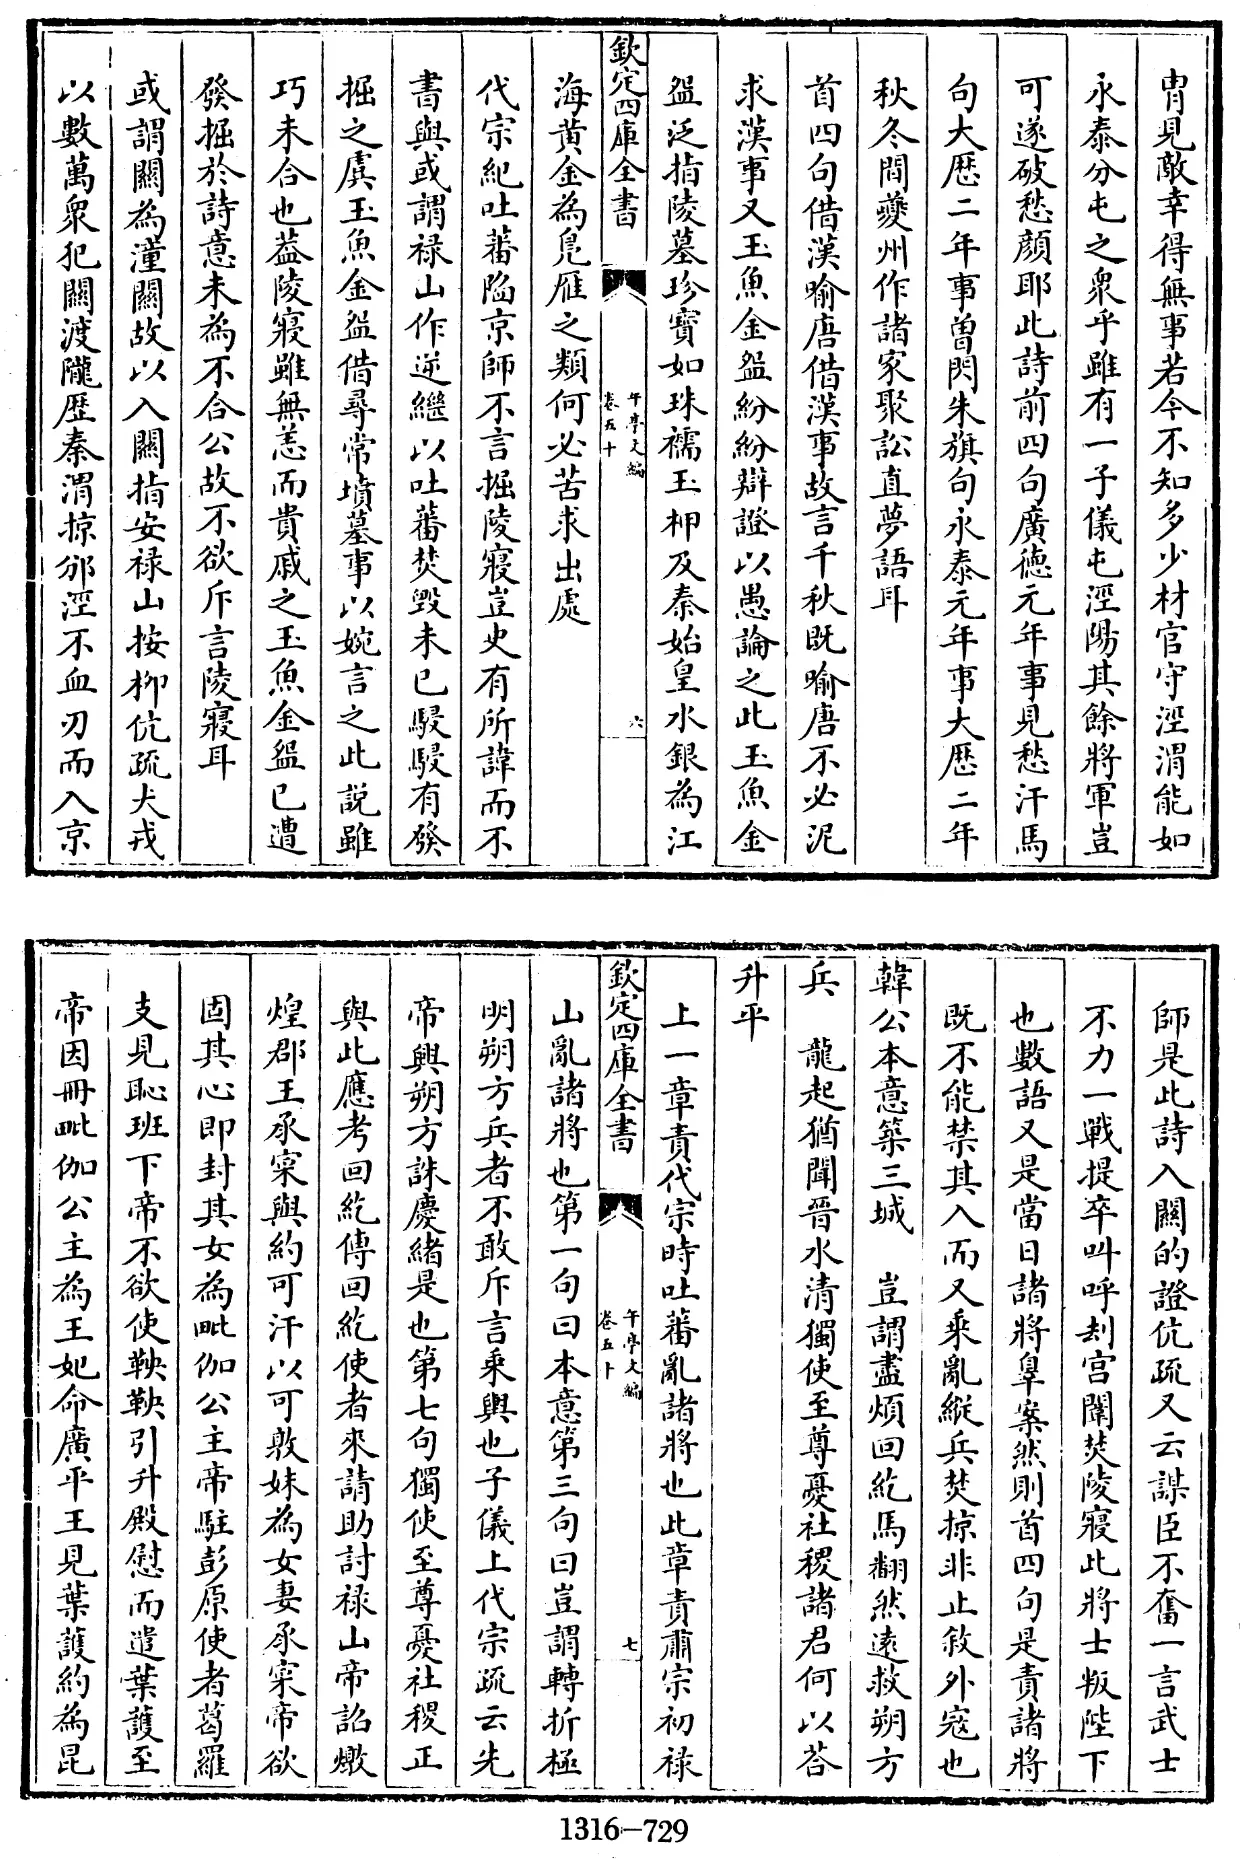 胄見敵幸得無事若今不知多少材官守涇渭能如
永泰分屯之衆乎雖有一子儀屯涇陽其餘將軍豈
可遂破愁顔耶此詩前四句廣德元年事見愁汗馬
句大厯二年事曽閃朱旗句永泰元年事大厯二年
秋冬間夔州作諸家聚訟直夢語耳
首四句借漢喻唐借漢事故言千秋既喻唐不必泥
求漢事又玉魚金盌紛紛辯證以愚論之此玉魚金
盌泛指陵墓珍寳如珠襦玉柙及秦始皇水銀為江
欽定四庫全書
午亭文編
卷五十
六
海黄金為鳬雁之類何必苦求出處
代宗紀吐蕃陷京師不言掘陵寢豈史有所諱而不
書與或謂禄山作逆繼以吐蕃焚毁未已駸駸有發
掘之虞玉魚金盌借尋常墳墓事以婉言之此説雖
巧未合也葢陵寢雖無恙而貴戚之玉魚金盌已遭
發掘於詩意未為不合公故不欲斥言陵寢耳
或謂闗為潼闗故以入闗指安禄山按栁伉疏犬戎
以數萬衆犯闗渡隴厯秦渭掠邠涇不血刃而入京
師是此詩入闗的證伉疏又云謀臣不奮一言武士
不力一戰提卒叫呼刦宫闈焚陵寢此將士叛陛下
也數語又是當日諸將辠案然則首四句是責諸將
既不能禁其入而又乘亂縱兵焚掠非止敘外寇也
韓公本意築三城　豈謂盡煩回紇馬翻然遠救朔方
兵　龍起猶聞晉水清獨使至尊憂社稷諸君何以荅
升平
上一章責代宗時吐蕃亂諸將也此章責肅宗初禄
欽定四庫全書
午亭文編
卷五十
七
山亂諸將也第一句曰本意第三句曰豈謂轉折極
明朔方兵者不敢斥言乘輿也子儀上代宗疏云先
帝興朔方誅慶緒是也第七句獨使至尊憂社稷正
與此應考回紇傳回紇使者來請助討禄山帝詔燉
煌郡王承寀與約可汗以可敦妹為女妻承寀帝欲
固其心即封其女為毗伽公主帝駐彭原使者葛羅
支見恥班下帝不欲使鞅鞅引升殿慰而遣葉護至
帝因冊毗伽公主為王妃命廣平王見葉護約為昆
1316-729